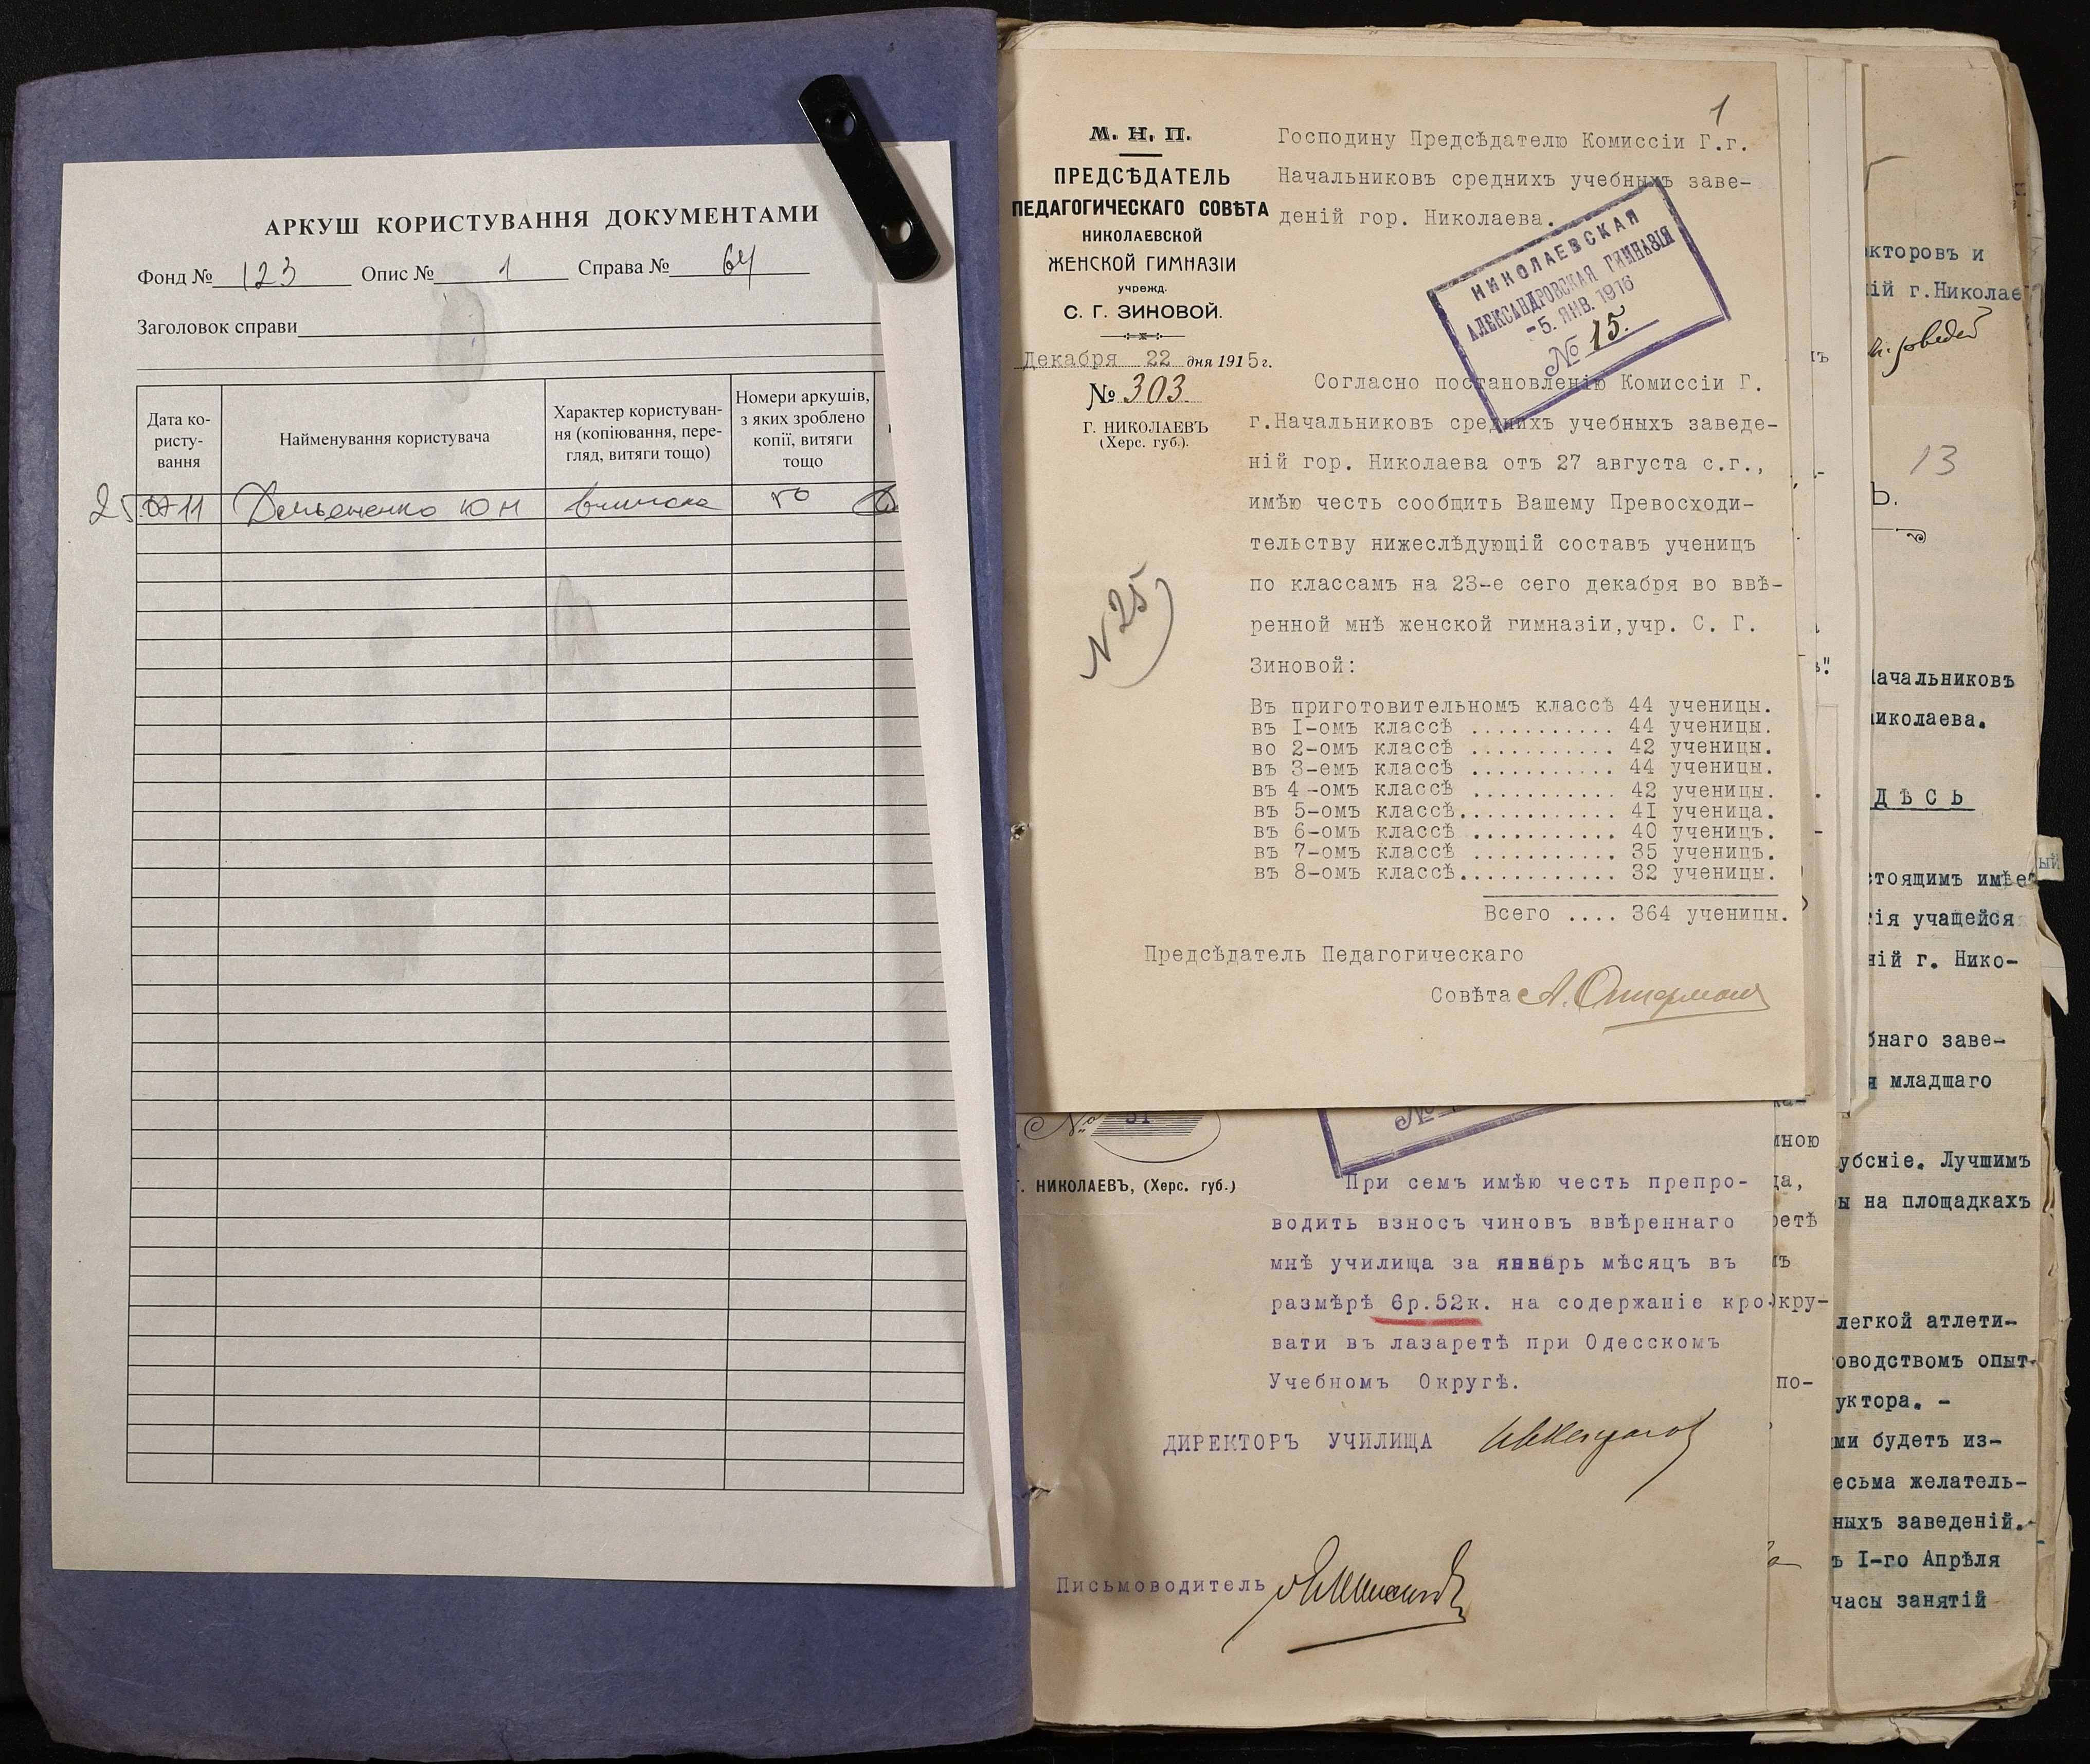 АРКУШ КОРИСТУВАННЯ ДОКУМЕНТАМИ
Фонд № 123 Опис № 1 Справа № 64
Заголовок справи
Дата ко-
ристу-
вання
Найменування користувача
Характер користуван-
ня (копіювання, пере-
гляд, витяги тощо)
Номери аркушів,
з яких зроблено
копії, витяги
тощо
1
М. Н. П.
ПРЕДСѢДАТЕЛЬ
ПЕДАГОГИЧЕСКАГО СОВѢТА
НИКОЛАЕВСКОЙ
ЖЕНСКОЙ ГИМНАЗІИ
учрежд.
С. Г. ЗИНОВОЙ.
Декабря 22 дня 1915 г.
№ 303
Г. НИКОЛАЕВЪ
(Херс. губ.).
N 25
Господину Предсѣдателю Комиссіи Г.г.
Начальниковъ среднихъ учебныхъ заве-
деній гор. Николаева.
НИКОЛАЕВСКАЯ
АЛЕКСАНДРОВСКАЯ ГИМНАЗІЯ
-5. ЯНВ. 1916
№ 15.
Согласно постановленію Комиссіи Г.
г.Начальниковъ среднихъ учебныхъ заведе-
ній гор. Николаева отъ 27 августа с.г.,
имѣю честь сообщить Вашему Превосходи-
тельству нижеслѣдующій составъ ученицъ
по классамъ на 23-е сего декабря во ввѣ-
ренной мнѣ женской гимназіи,учр. С. Г.
Зиновой:
Въ приготовительномъ классѣ 44 ученицы.
въ I-омъ классѣ ........... 44 ученицы.
во 2-омъ классѣ ........... 42 ученицы.
въ 3-емъ классѣ ........... 44 ученицы.
въ 4-омъ классѣ ........... 42 ученицы.
въ 5-омъ классѣ............ 41 ученица.
въ 6-омъ классѣ ........... 40 ученицъ.
въ 7-омъ классѣ ........... 35 ученицъ.
въ 8-омъ классѣ............ 32 ученицы.
Всего .... 364 ученицы.
Предсѣдатель Педагогическаго
Совѣта
№ 51
Г. НИКОЛАЕВЪ, (Херс. губ.)
При семъ имѣю честь препро-
водить взносъ чиновъ ввѣреннаго
мнѣ училища за январь мѣсяцъ въ
размѣрѣ 6р.52к. на содержаніе кро-
вати въ лазаретѣ при Одесскомъ
Учебномъ Округѣ.
ДИРЕКТОРЪ УЧИЛИЩА
Письмоводитель
кторовъ и
ій г.Николае
13
ачальниковъ
иколаева.
ДѢСЬ
стоящимъ имѣе
ія учащейся
ній г. Нико-
бнаго заве-
я младшаго
убскіе. Лучшимъ
ы на площадкахъ
легкой атлети-
оводствомъ опыт-
уктора. -
ми будетъ из-
есьма желатель-
ныхъ заведеній.
ъ I-го Апрѣля
часы занятій